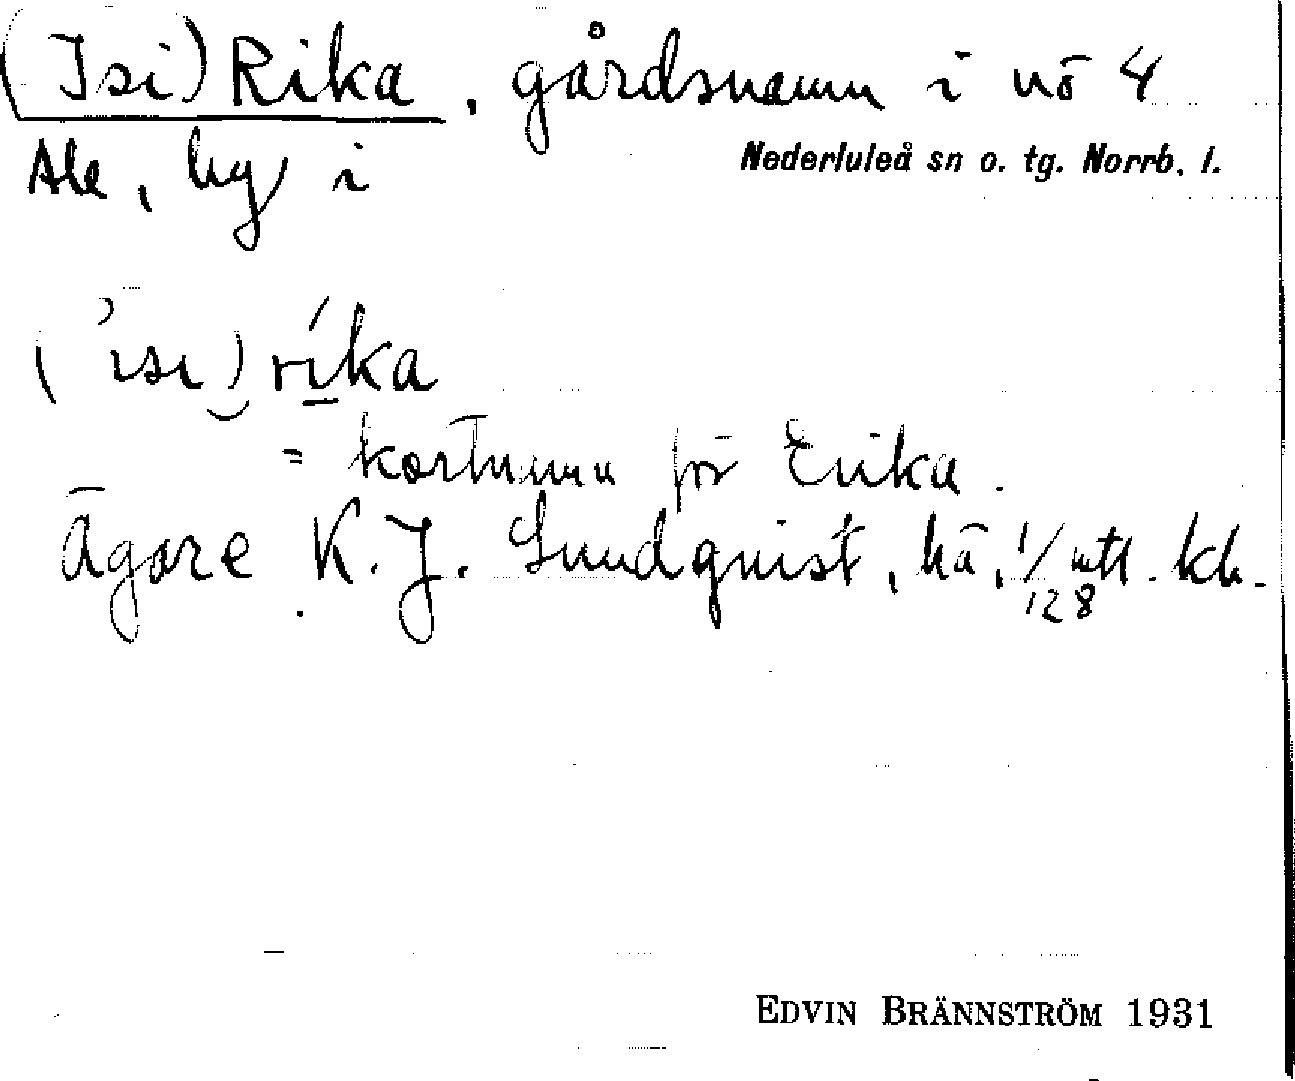 (Isi)Rika, gårdsnamn i nö 4
Ale, by i Nederluleå sn o. tg. Norrb. l.
('isi)ríka
= kortnamn för Erika.
Ägare K. J. Lundqvist, hä, 1/128 mtl. kh.
EDVIN BRÄNNSTRÖM 1931